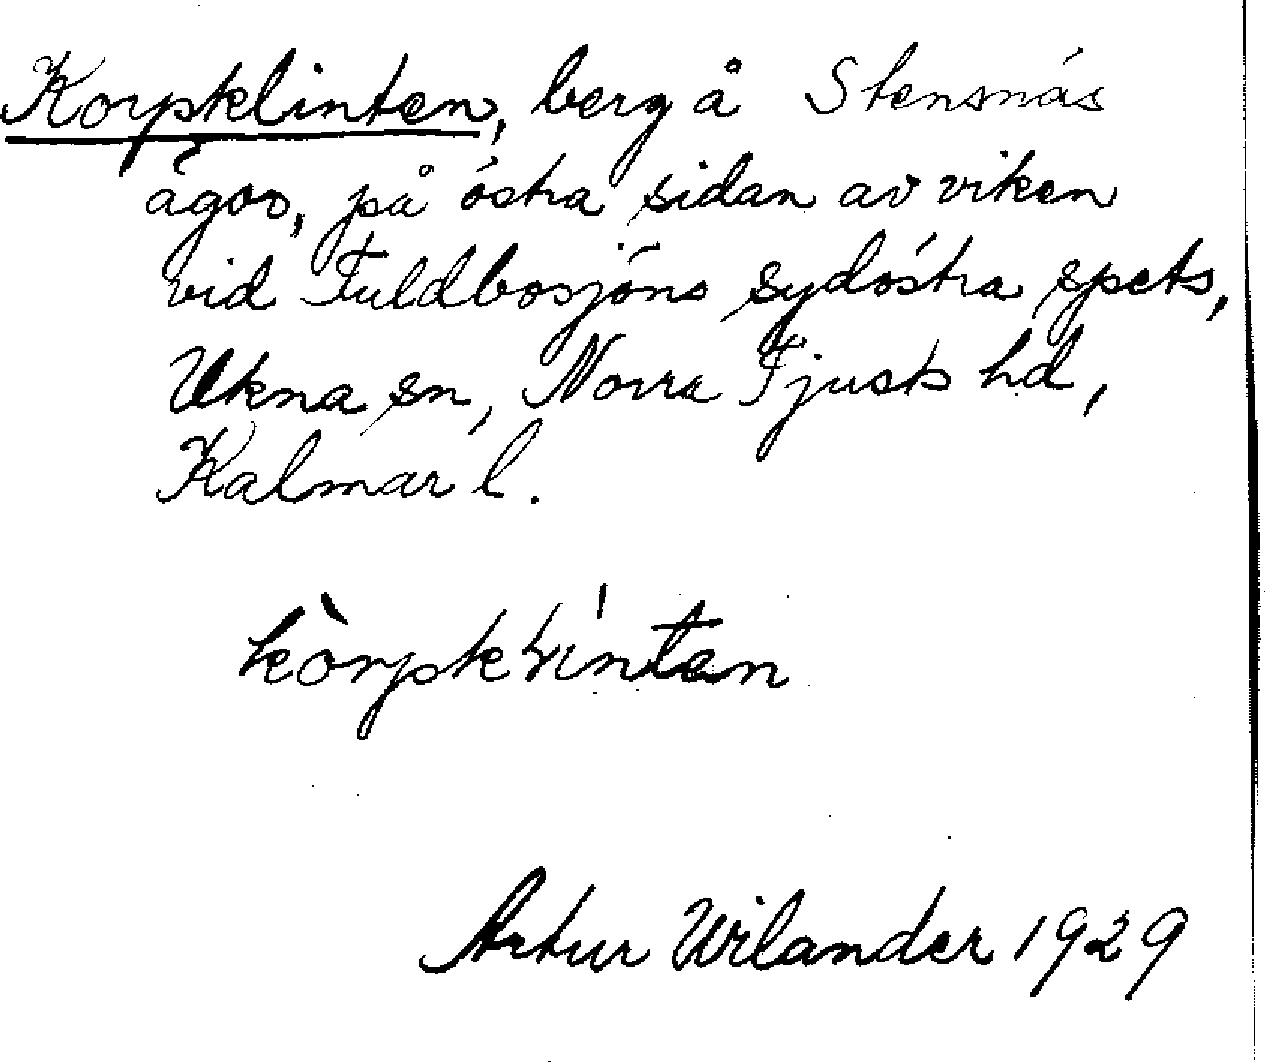 Korpklinten, berg å Stensnäs
ägor, på östra sidan av viken
vid Fuldbosjöns sydöstra spets,
Ukna sn, Norra Tjusts hd,
Kalmar l.
Artur Wilander 1929